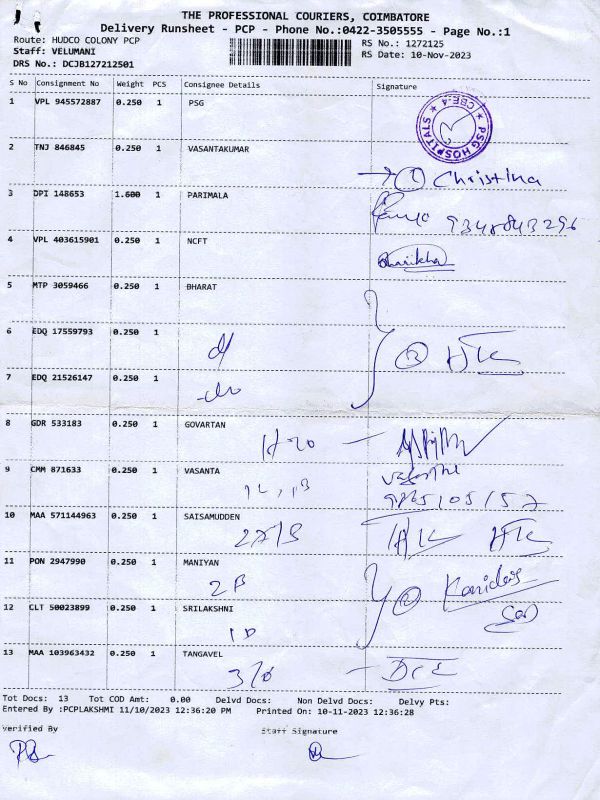 THE PROFESSIONAL COURIERS, COIMBATORE
Delivery Runsheet - PCP - Phone No.:0422-3505555 - Page No.:1
Route: HUDCO COLONY PCP
RS No.: 1272125
Staff: VELUMANI
RS Date: 10-Nov-2023
DRS No.: DCJB127212501
S No Consignment No Weight PCS Consignee Details Signature
1 VPL 945572887 0.250 1 PSG
★ PSG HOSPITALS ★ CBE-4
2 TNJ 846845 0.250 1 VASANTAKUMAR
→ 1 Christina
3 DPI 148653 1.600 1 PARIMALA
4 VPL 403615901 0.250 1 NCFT
5 MTP 3059466 0.250 1 BHARAT
6 EDQ 17559793 0.250 1
7 EDQ 21526147 0.250 1
8 GDR 533183 0.250 1 GOVARTAN
9 CMM 871633 0.250 1 VASANTA
10 MAA 571144963 0.250 1 SAISAMUDDEN
11 PON 2947990 0.250 1 MANIYAN
12 CLT 50023899 0.250 1 SRILAKSHNI
13 MAA 103963432 0.250 1 TANGAVEL
Tot Docs: 13 Tot COD Amt: 0.00 Delvd Docs: Non Delvd Docs: Delvy Pts:
Entered By :PCPLAKSHMI 11/10/2023 12:36:20 PM Printed On: 10-11-2023 12:36:28
Verified By Staff Signature